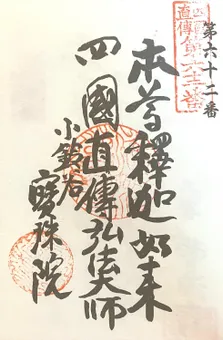 第六十二番
直傳第六十二番
本尊釋迦如来
四國直傳弘法大師
小鈴谷
寶珠院